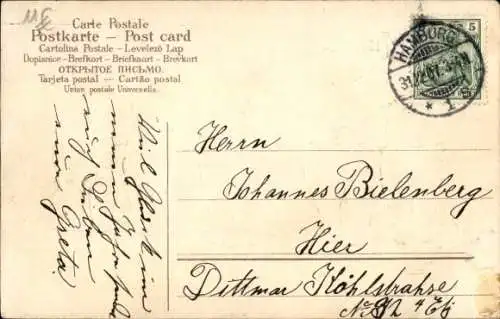 Carte Postale
Postkarte – Post card
Cartolina Postale - Levelező Lap
Dopisnice - Brefkort - Briefkaart - Brevkort
ОТКРЫТОЕ ПИСЬМО.
Tarjeta postal — Cartão postal
Union postale Universelle.
HAMBURG
1
5
Herrn
Johannes Bielenberg
Hier
Dittmar Köhlstrahse
Viel Glück im
neuen Jahr
Greta.